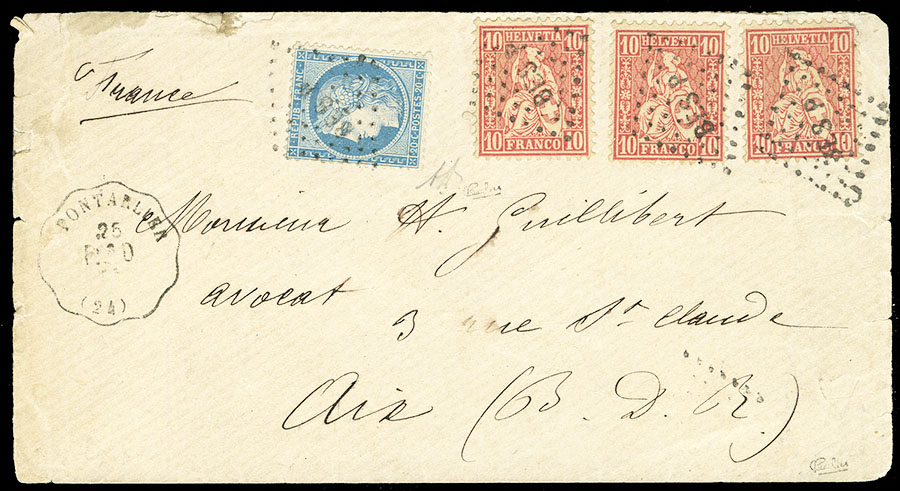 France
REPUB. FRANC.
20 C. POSTES. 20 C.
10 HELVETIA 10
10 FRANCO 10
10 HELVETIA 10
10 FRANCO 10
10 HELVETIA 10
10 FRANCO 10
BES P
BES P
PONTARLIER
25
(24)
Monsieur H. Guillibert
avocat
3 rue St. Claude
Aix (B. D. R.)